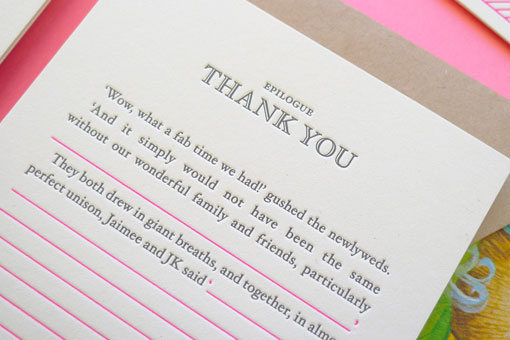 EPILOGUE
THANK YOU
‘Wow, what a fab time we had!’ gushed the newlyweds.
‘And it simply would not have been the same
without our wonderful family and friends, particularly
.’
They both drew in giant breaths, and together, in almo
perfect unison, Jaimee and JK said ‘